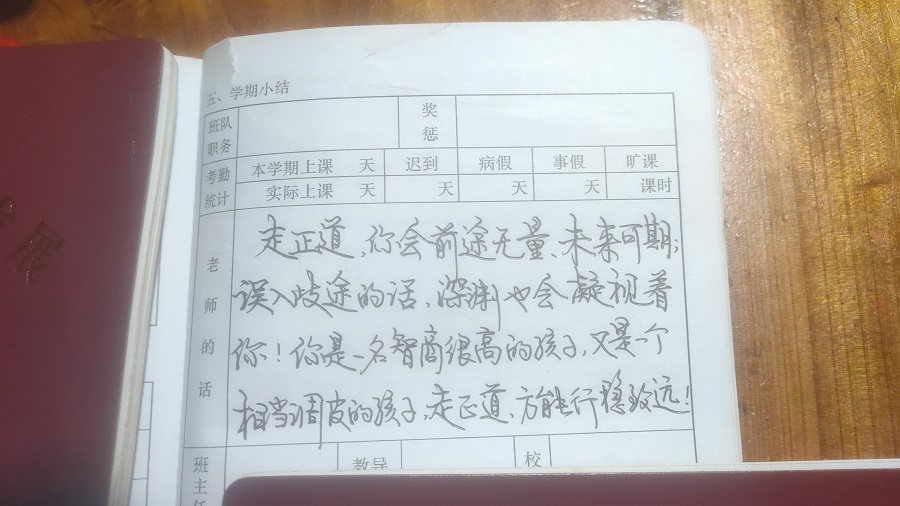 展
五、学期小结
班队职务 奖惩
考勤统计 本学期上课 天 迟到 病假 事假 旷课
实际上课 天 天 天 天 课时
老师的话
走正道,你会前途无量、未来可期;
误入歧途的话,深渊也会凝视着
你!你是一名智商很高的孩子,又是一个
相当调皮的孩子,走正道、方能行稳致远!
班主任 教导 校